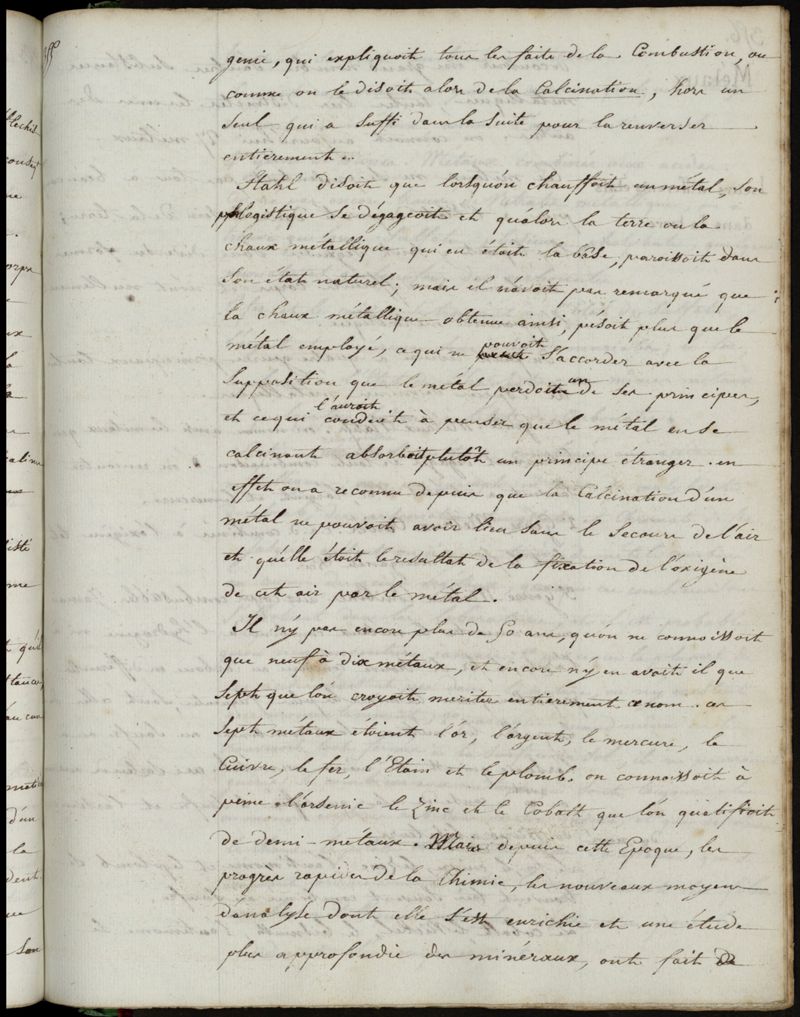 genie, qui expliquoit tous les faits de la Combustion, ou
comme on le disoit alors de la Calcination, hors un
seul qui a suffi dans la suite pour la renverser
entièrement.
Stahl disoit que lorsqu'on chauffoit un métal, son
phlogistique se dégageoit et qu'alors la terre ou la
chaux métallique qui en étoit la bâse, paroissoit dans
son état naturel; mais il n'avoit pas remarqué que
la chaux métallique obtenue ainsi, pésoit plus que le
métal employé, ce qui ne pouvoit s'accorder avec la
supposition que le métal perdoit un de ses principes,
et ce qui l'auroit conduit à penser que le métal en se
calcinant absorboit plutôt un principe étranger. en
effet on a reconnu depuis que la Calcination d'un
métal ne pouvoit avoir lieu sans le secours de l'air
et qu'elle étoit le resultat de la fixation de l'oxigène
de cet air par le métal.
Il n'y pas encore plus de 50 ans, qu'on ne connoissoit
que neuf à dix métaux, et encore n'y en avoit il que
sept que l'on croyoit meriter entièrement ce nom. ces
sept métaux étoient l'or, l'argent, le mercure, le
Cuivre, le fer, l'Etain et le plomb. on connoissoit à
peine l'arsenic le Zinc et le Cobalt que l'on qualifioit
de demi-métaux. Mais depuis cette Epoque, les
progrès rapides de la Chimie, les nouveaux moyens
d'analyse dont elle s'est enrichie et une étude
plus approfondie des minéraux, ont fait de